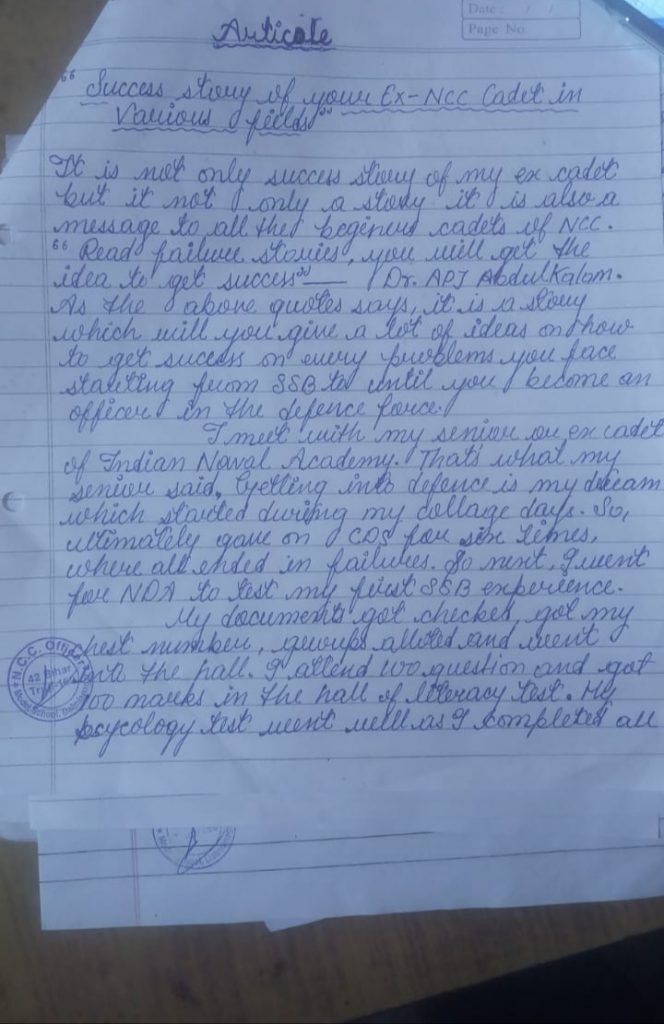 Date: / /
Page No.
Auticale
"Success story of your Ex-NCC Cadet in
Various fields"
It is not only success story of my ex cadet
but it not only a story it is also a
message to all the begeners cadets of NCC.
"Read failure stories, you will get the
idea to get success" — Dr. APJ AbdulKalam.
As the above quotes says, it is a story
which will you give a lot of ideas on how
to get success on every problems you face
starting from SSB to until you become an
officer in the defence force.
I meet with my senior or ex cadet
of Indian Naval Academy. That's what my
senior said, Getting into defence is my dream
which started during my collage days. So,
ultimately gave on CDS for six times,
where all ended in failures. So next, I went
for NDA to test my first SSB experience.
My documents got checked, got my
chest number, groups alloted and went
into the hall. I attend 100 question and got
100 marks in the hall of literacy test. My
pscycology test went well as I completed all
N.C.C. Officer
42 Bihar